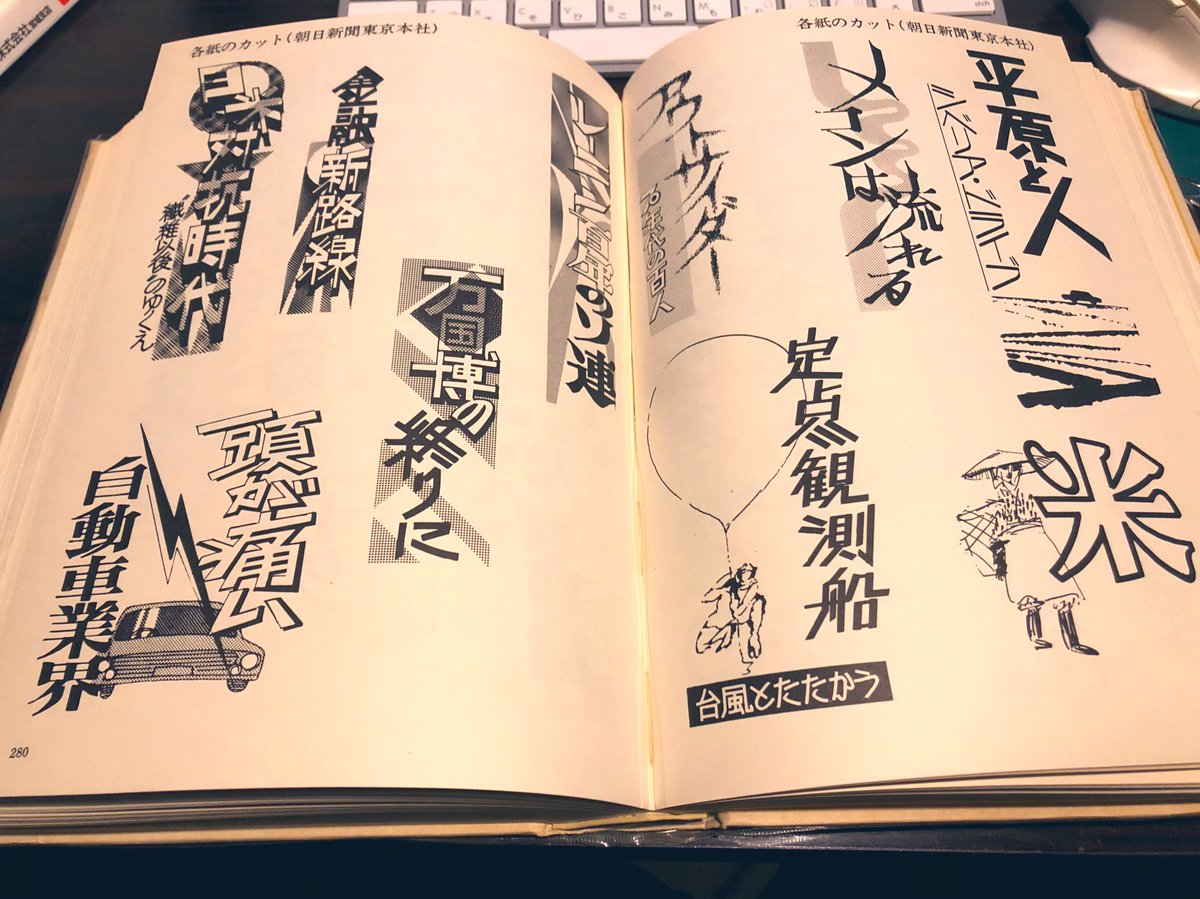 各紙のカット(朝日新聞東京本社)
平原と人
シベリア・ジラーブ
メコンは
流れる
アウトサイダー
70年代の百人
米
定点観測船
台風とたたかう
各紙のカット(朝日新聞東京本社)
レーニン百年のソ連
金融新路線
日米対抗時代
繊維以後のゆくえ
万国博の
終りに
頭が痛い
自動車業界
280